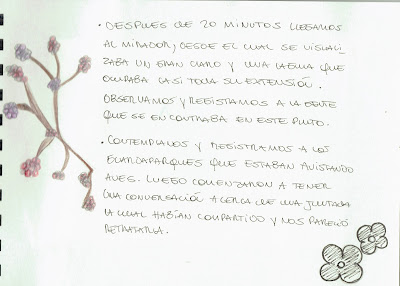 • DESPUÉS DE 20 MINUTOS LLEGAMOS
AL MIRADOR, DESDE EL CUAL SE VISUALI
ZABA UN GRAN CLARO Y UNA LAGUNA QUE
OCUPABA CASI TODA SU EXTENSIÓN.
OBSERVAMOS Y REGISTRAMOS A LA GENTE
QUE SE ENCONTRABA EN ESTE PUNTO.
• CONTEMPLAMOS Y REGISTRAMOS A LOS
GUARDAPARQUES QUE ESTABAN AVISTANDO
AVES. LUEGO COMENZARON A TENER
UNA CONVERSACIÓN ACERCA DE UNA
LA CUAL HABÍAN COMPARTIDO Y NOS PARECIÓ
RETRATARLA.